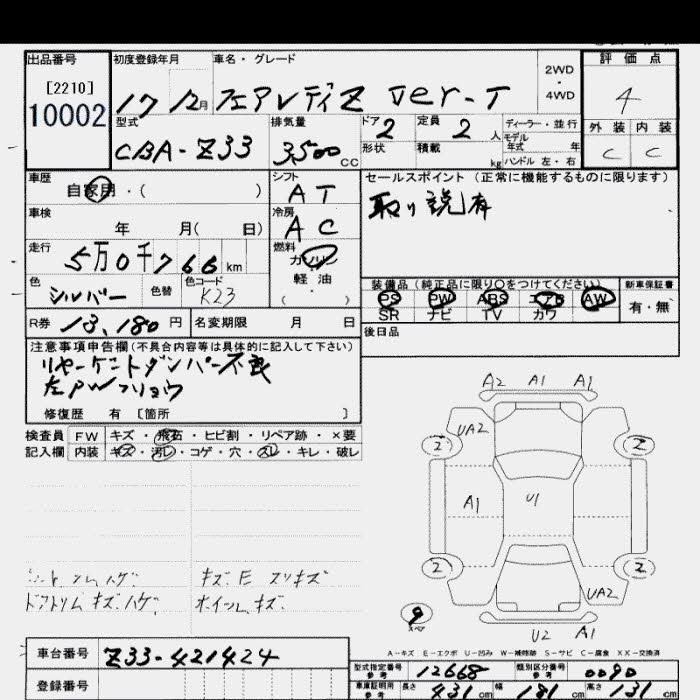 出品番号 初度登録年月 車名・グレード 2WD・4WD 評価点
[2210]
10002 17 12月 フェアレディZ Ver-T 4
型式 排気量 ドア 2 定員 2人 ディーラー・並行 外装 内装
CBA-Z33 3,500 CC 形状 積載 kg モデル年式 年 C C
ハンドル 左・右
車歴 自家用・( ) シフト AT セールスポイント (正常に機能するものに限ります)
車検 年 月( 日) 冷房 AC 取り説有
走行 5万0千766km 燃料 ガソリン
軽油
( ・ )
色 シルバー 色替 色コード K23 装備品 (純正品に限り○をつけてください) 新車保証書
PS PW ABS エアB AW 有・無
SR ナビ TV カワ
R券 13,180円 名変期限 月 日 後日品
注意事項申告欄(不具合内容等は具体的に記入して下さい)
リヤゲートダンパー不良
左PWフリョウ
修復歴 有 [箇所 ]
検査員 FW キズ・飛石・ヒビ割・リペア跡・×要
記入欄 内装 キズ・汚レ・コゲ・穴・スレ・キレ・破レ
A2 A1 A1
UA2
2 2
A1 U1
2 2
UA2
9 スペア
U2 A1
キズ.E スリキズ
ドアトリム キズ.ハゲ. ホイール.キズ.
A-キズ E-エクボ U-凹み W-補修跡 S-サビ C-腐食 XX-交換済
車台番号 Z33-421424 型式指定番号 参考 12668 類別区分番号 参考 0090
登録番号 車庫証明用 参考 長さ 431cm 幅 181cm 高さ 131cm